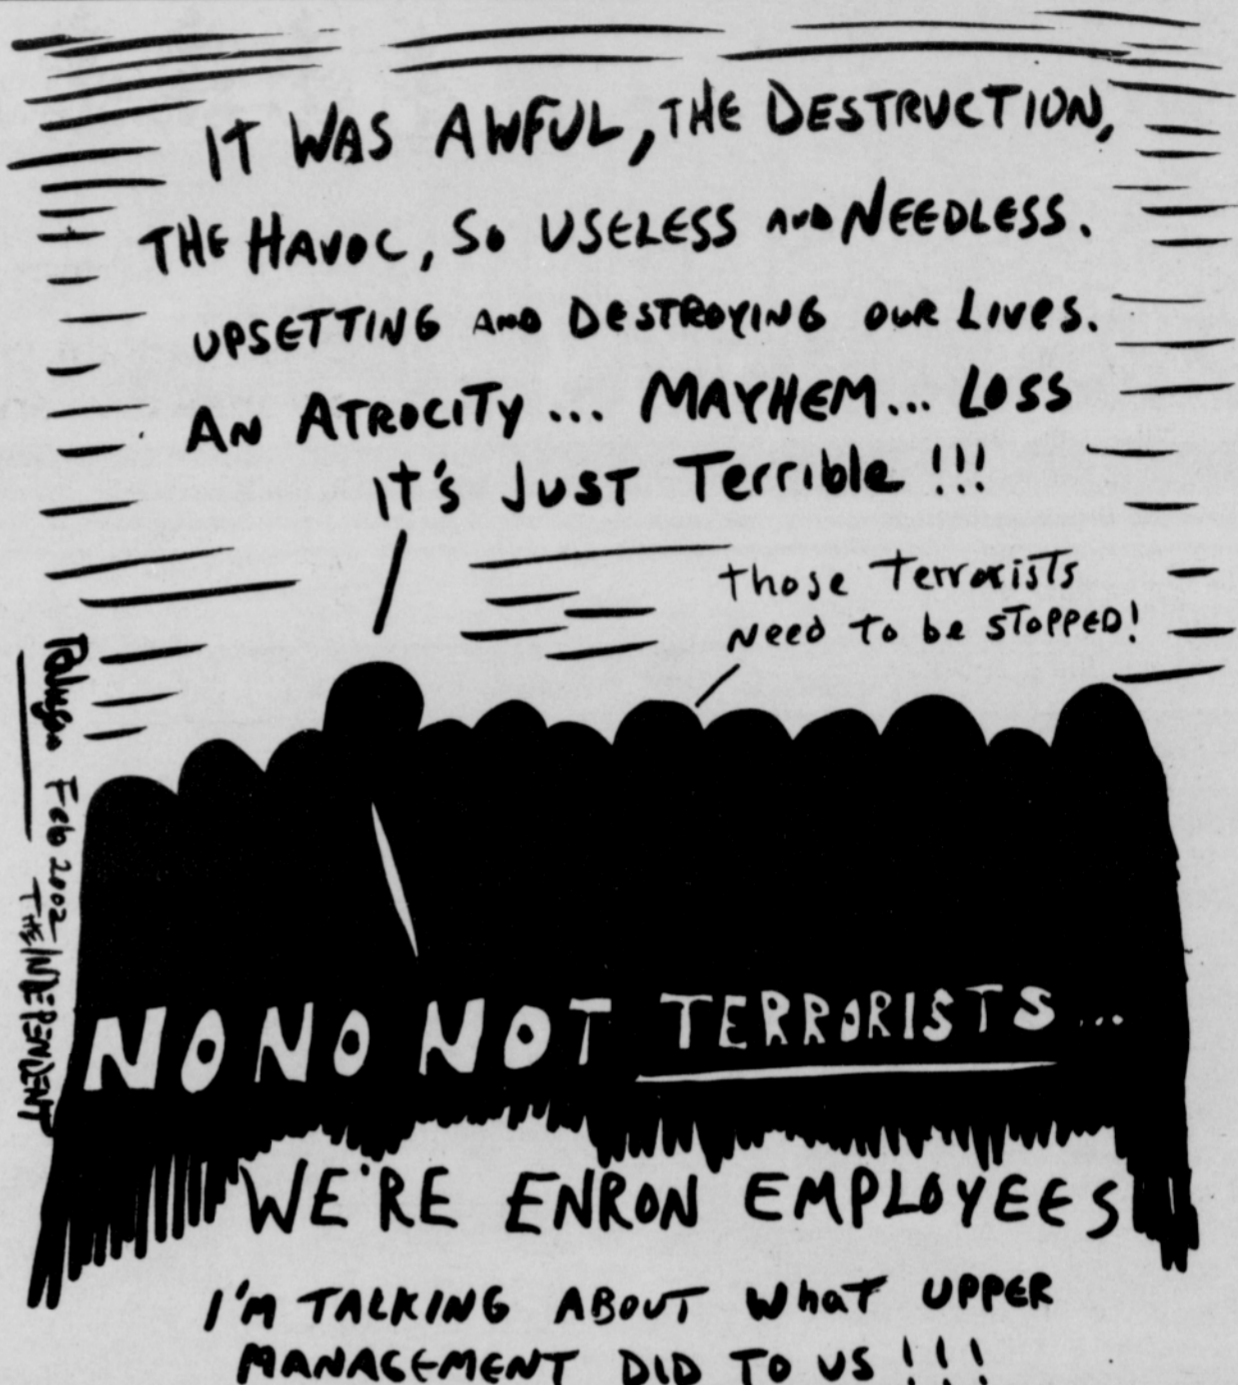 IT WAS AWFUL, THE DESTRUCTION,
THE HAVOC, SO USELESS AND NEEDLESS.
UPSETTING AND DESTROYING OUR LIVES.
AN ATROCITY... MAYHEM... LOSS
IT'S JUST Terrible!!!
those Terrorists
Need to be STOPPED!
NO NO NOT TERRORISTS...
WE'RE ENRON EMPLOYEES
I'M TALKING ABOUT WhaT UPPER
MANAGEMENT DID TO US!!!
Feb 2002
THE INDEPENDENT